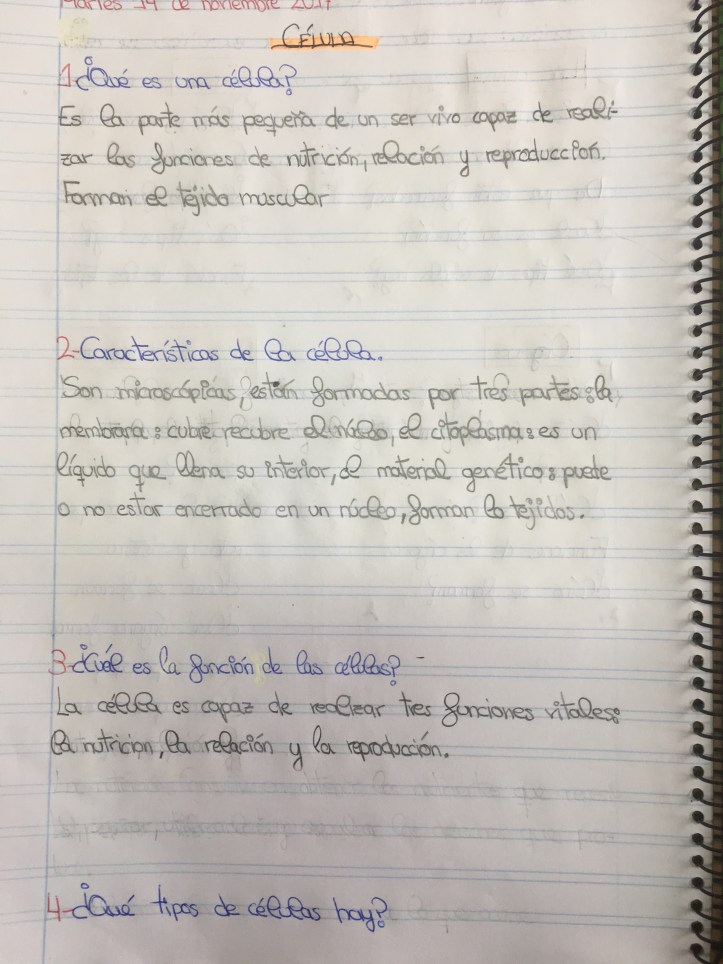 Martes 14 de noviembre 2017
CÉLULA
1-¿Qué es una célula?
Es la parte más pequeña de un ser vivo capaz de reali-
zar las funciones de nutrición, relación y reproducción.
Forman el tejido muscular
2-Características de la célula.
Son microscópicas, están formadas por tres partes: la
membrana: cubre recubre el núcleo, el citoplasma: es un
líquido que llena su interior, el material genético: puede
o no estar encerrado en un núcleo, forman lo tejidos.
3-¿Cuál es la función de las células?
La célula es capaz de realizar tres funciones vitales:
la nutricion, la relación y la reproducción.
4-¿Qué tipos de células hay?